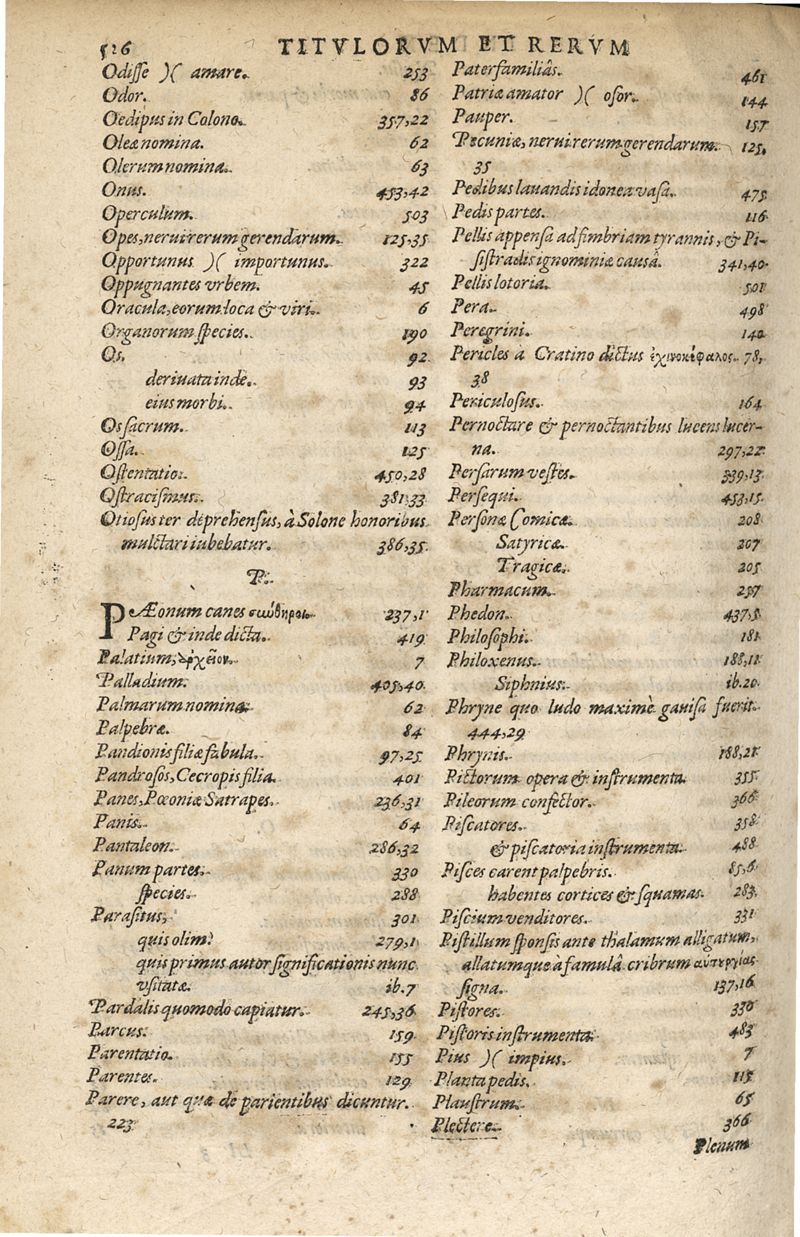 526 TITVLORVM ET RERVM
Odisse )( amare. 253
Odor. 86
Oedipus in Colono. 357,22
Oleæ nomina. 62
Olerum nomina. 63
Onus. 453,42
Operculum. 503
Opes, nerui rerum gerendarum. 125,35
Opportunus )( importunus. 322
Oppugnantes vrbem. 45
Oracula, eorum loca & viri. 6
Organorum species. 190
Os. 92
deriuata inde. 93
eius morbi. 94
Os sacrum. 113
Ossa. 125
Ostentatio. 450,28
Ostracismus. 381.33
Otiosus ter deprehensus, à Solone honoribus
mulctari iubebatur. 386,35.
P.
PÆonum canes 237,1
Pagi & inde dicta. 419
Palatium, ἀρχεῖον. 7
Palladium. 405,40.
Palmarum nomina. 62
Palpebræ. 84
Pandionis filiæ fabula. 97,25
Pandrosos, Cecropis filia. 401
Panes, Pœoniæ Satrapes. 236,31
Panis. 64
Pantaleon. 286,32
Panum partes. 330
species. 288
Parasitus, 301
quis olim? 279,1
quis primus autor significationis nunc
vsitatæ. ib.7
Pardalis quomodo capiatur. 245,36
Parcus. 159
Parentatio. 155
Parentes. 129
Parere, aut quæ de parientibus dicuntur.
223
Paterfamiliâs. 461
Patriæ amator )( osor. 144
Pauper. 157
Pecuniæ, nerui rerum gerendarum. 125.
35
Pedibus lauandis idonea vasa. 475
Pedis partes. 116
Pellis appensa ad fimbriam tyrannis, & Pi-
sistradis ignominiæ causâ. 341,40.
Pellis lotoria. 501
Pera. 498
Peregrini. 140
Pericles à Cratino dictus ἐχινοκέφαλος. 78,
38
Periculosus. 164
Pernoctare & pernoctantibus lucens lucer-
na. 297,22
Persarum vestes. 339,13
Persequi. 453,15
Personæ Comicæ. 208
Satyricæ. 207
Tragicæ. 205
Pharmacum. 257
Phedon. 437,5
Philosophi. 181
Philoxenus. 188,11
Siphnius. ib.20.
Phryne quo ludo maximè gauisa fuerit.
444,29
Phrynis. 188,21
Pictorum opera & instrumenta. 355
Pileorum confector. 366
Piscatores. 358
& piscatoria instrumenta. 488
Pisces carent palpebris. 85,6
habentes cortices & squamas. 283
Piscium venditores. 331
Pistillum sponsis ante thalamum alligatum,
allatumque à famulâ cribrum αὐτουργίας
signa. 137,16
Pistores. 330
Pistoris instrumenta. 483
Pius )( impius. 7
Planta pedis. 115
Plaustrum. 65
Plectere. 366
Plenum